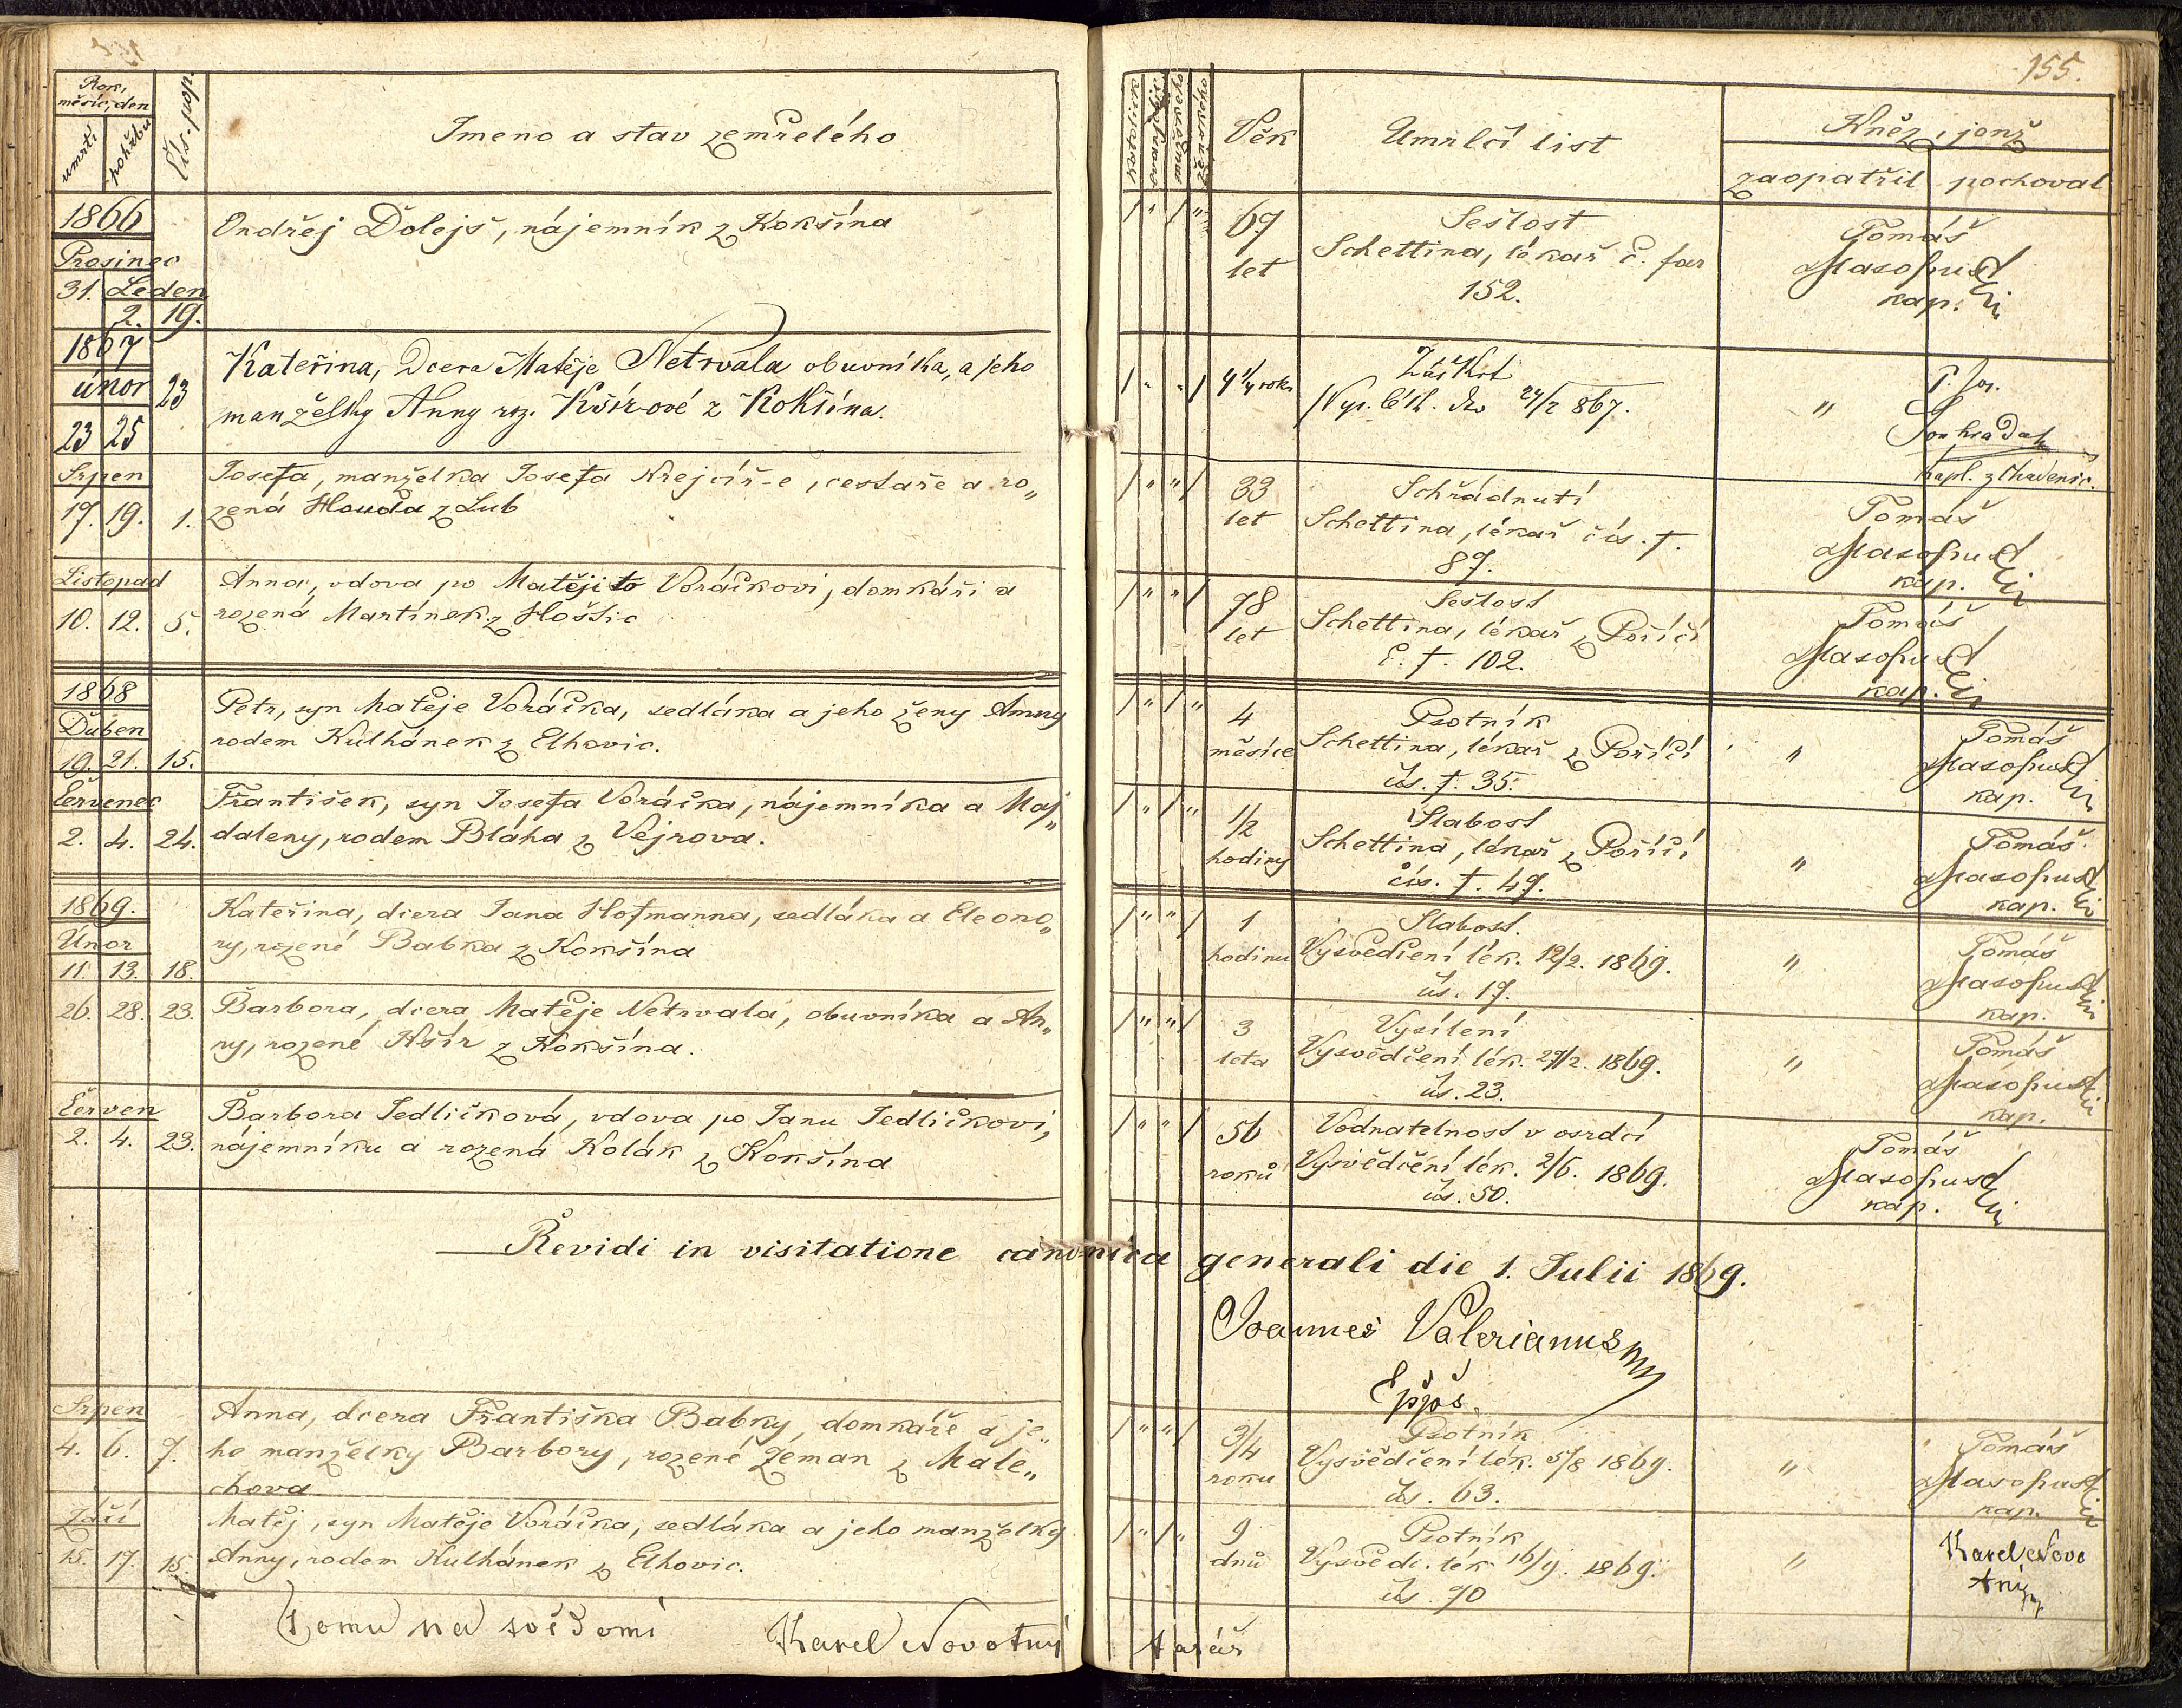 155.
Rok, měsíc, den
umrtí
pohřbu
Čís. pop.
Jmeno a stav zemřelého
katolické
mužského
ženského
Věk
Umrlčí list
Kněz, jenž
zaopatřil
pochoval
1866
Prosinec
31. Leden
2. 19.
Ondřej Dolejš, nájemník z Kokšína
67 let
Sešlost
Schettina, lékař č. far
152.
Tomáš
Masopust
kap.
1867
únor
23 25 23
Kateřina, Dcera Matěje Netrvala obuvníka, a jeho
manželky Anny roz. Kšír-ové z Kokšína.
4 1/4 roku
Záškrt
24/2 867.
"
P. Jos.
Souhradal
kapl. z
Srpen
17. 19. 1.
Josefa, manželka Josefa Krejcíř-e, cestaře a ro„
zená Houda z Lub
33 let
Schřádnutí
Schettina, lékař čís. f.
87.
Tomáš
Masopust
kap.
Listopad
10. 12. 5.
Anna, vdova po Matěji to Voráčkovi, domkáři a
rozená Martínek z Hoštic
78 let
Sešlost
Schettina, lékař z Poříčí
č. f. 102.
Tomáš
Masopust
kap.
1868
Duben
19. 21. 15.
Petr, syn Matěje Voráčka, sedláka a jeho ženy Anny
rodem Kulhánek z Elhovic.
4 měsíce
Psotník
Schettina, lékař z Poříčí
čís. f. 35.
"
Tomáš
Masopust
kap.
Červenec
2. 4. 24.
František, syn Josefa Voráčka, nájemníka a Maj„
daleny, rodem Bláha z Vejrova.
1/2 hodiny
Slabost
Schettina, lékař z Poříčí
čís. f. 49.
"
Tomáš
Masopust
kap.
1869.
Únor
11. 13. 18.
Kateřina, dcera Jana Hofmanna, sedláka a Eleono„
ry, rozené Babka z Kokšína
1 hodinu
Slabost.
Vysvědčení lék. 12/2. 1869.
čís. 17.
"
Tomáš
Masopust
kap.
26. 28. 23.
Barbora, dcera Matěje Netrvala, obuvníka a An„
ny, rozené Kšír z Kokšína.
3 leta
Vysílení
Vysvědčení lék. 27/2. 1869.
čís. 23.
"
Tomáš
Masopust
kap.
Červen
2. 4. 23.
Barbora Jedličková, vdova po Janu Jedličkovi,
nájemníku a rozená Kolák z Kokšína
56 roků
Vodnatelnost v osrdcí
Vysvědčení lék. 2/6. 1869.
čís. 50.
Tomáš
Masopust
kap.
Revidi in visitatione canonica generali die 1. Julii 1869.
Joannes Valerianus
Eppus.
Srpen
4. 6. 7.
Anna, dcera Františka Babky, domkáře a je„
ho manželky Barbory, rozené Zeman z Male„
chova
3/4 roku
Psotník
Vysvědčení lék. 5/8 1869.
čís. 63.
"
Tomáš
Masopust
kap.
Září
15. 17. 15.
Matěj, syn Matěje Voráčka, sedláka a jeho manželky
Anny, rodem Kulhánek z Elhovic.
9 dnů
Psotník
Vysvědč. lék. 16/9. 1869.
čís. 70
"
Karel Novo
tný
Tomu na svědomí Karel Novotný farář